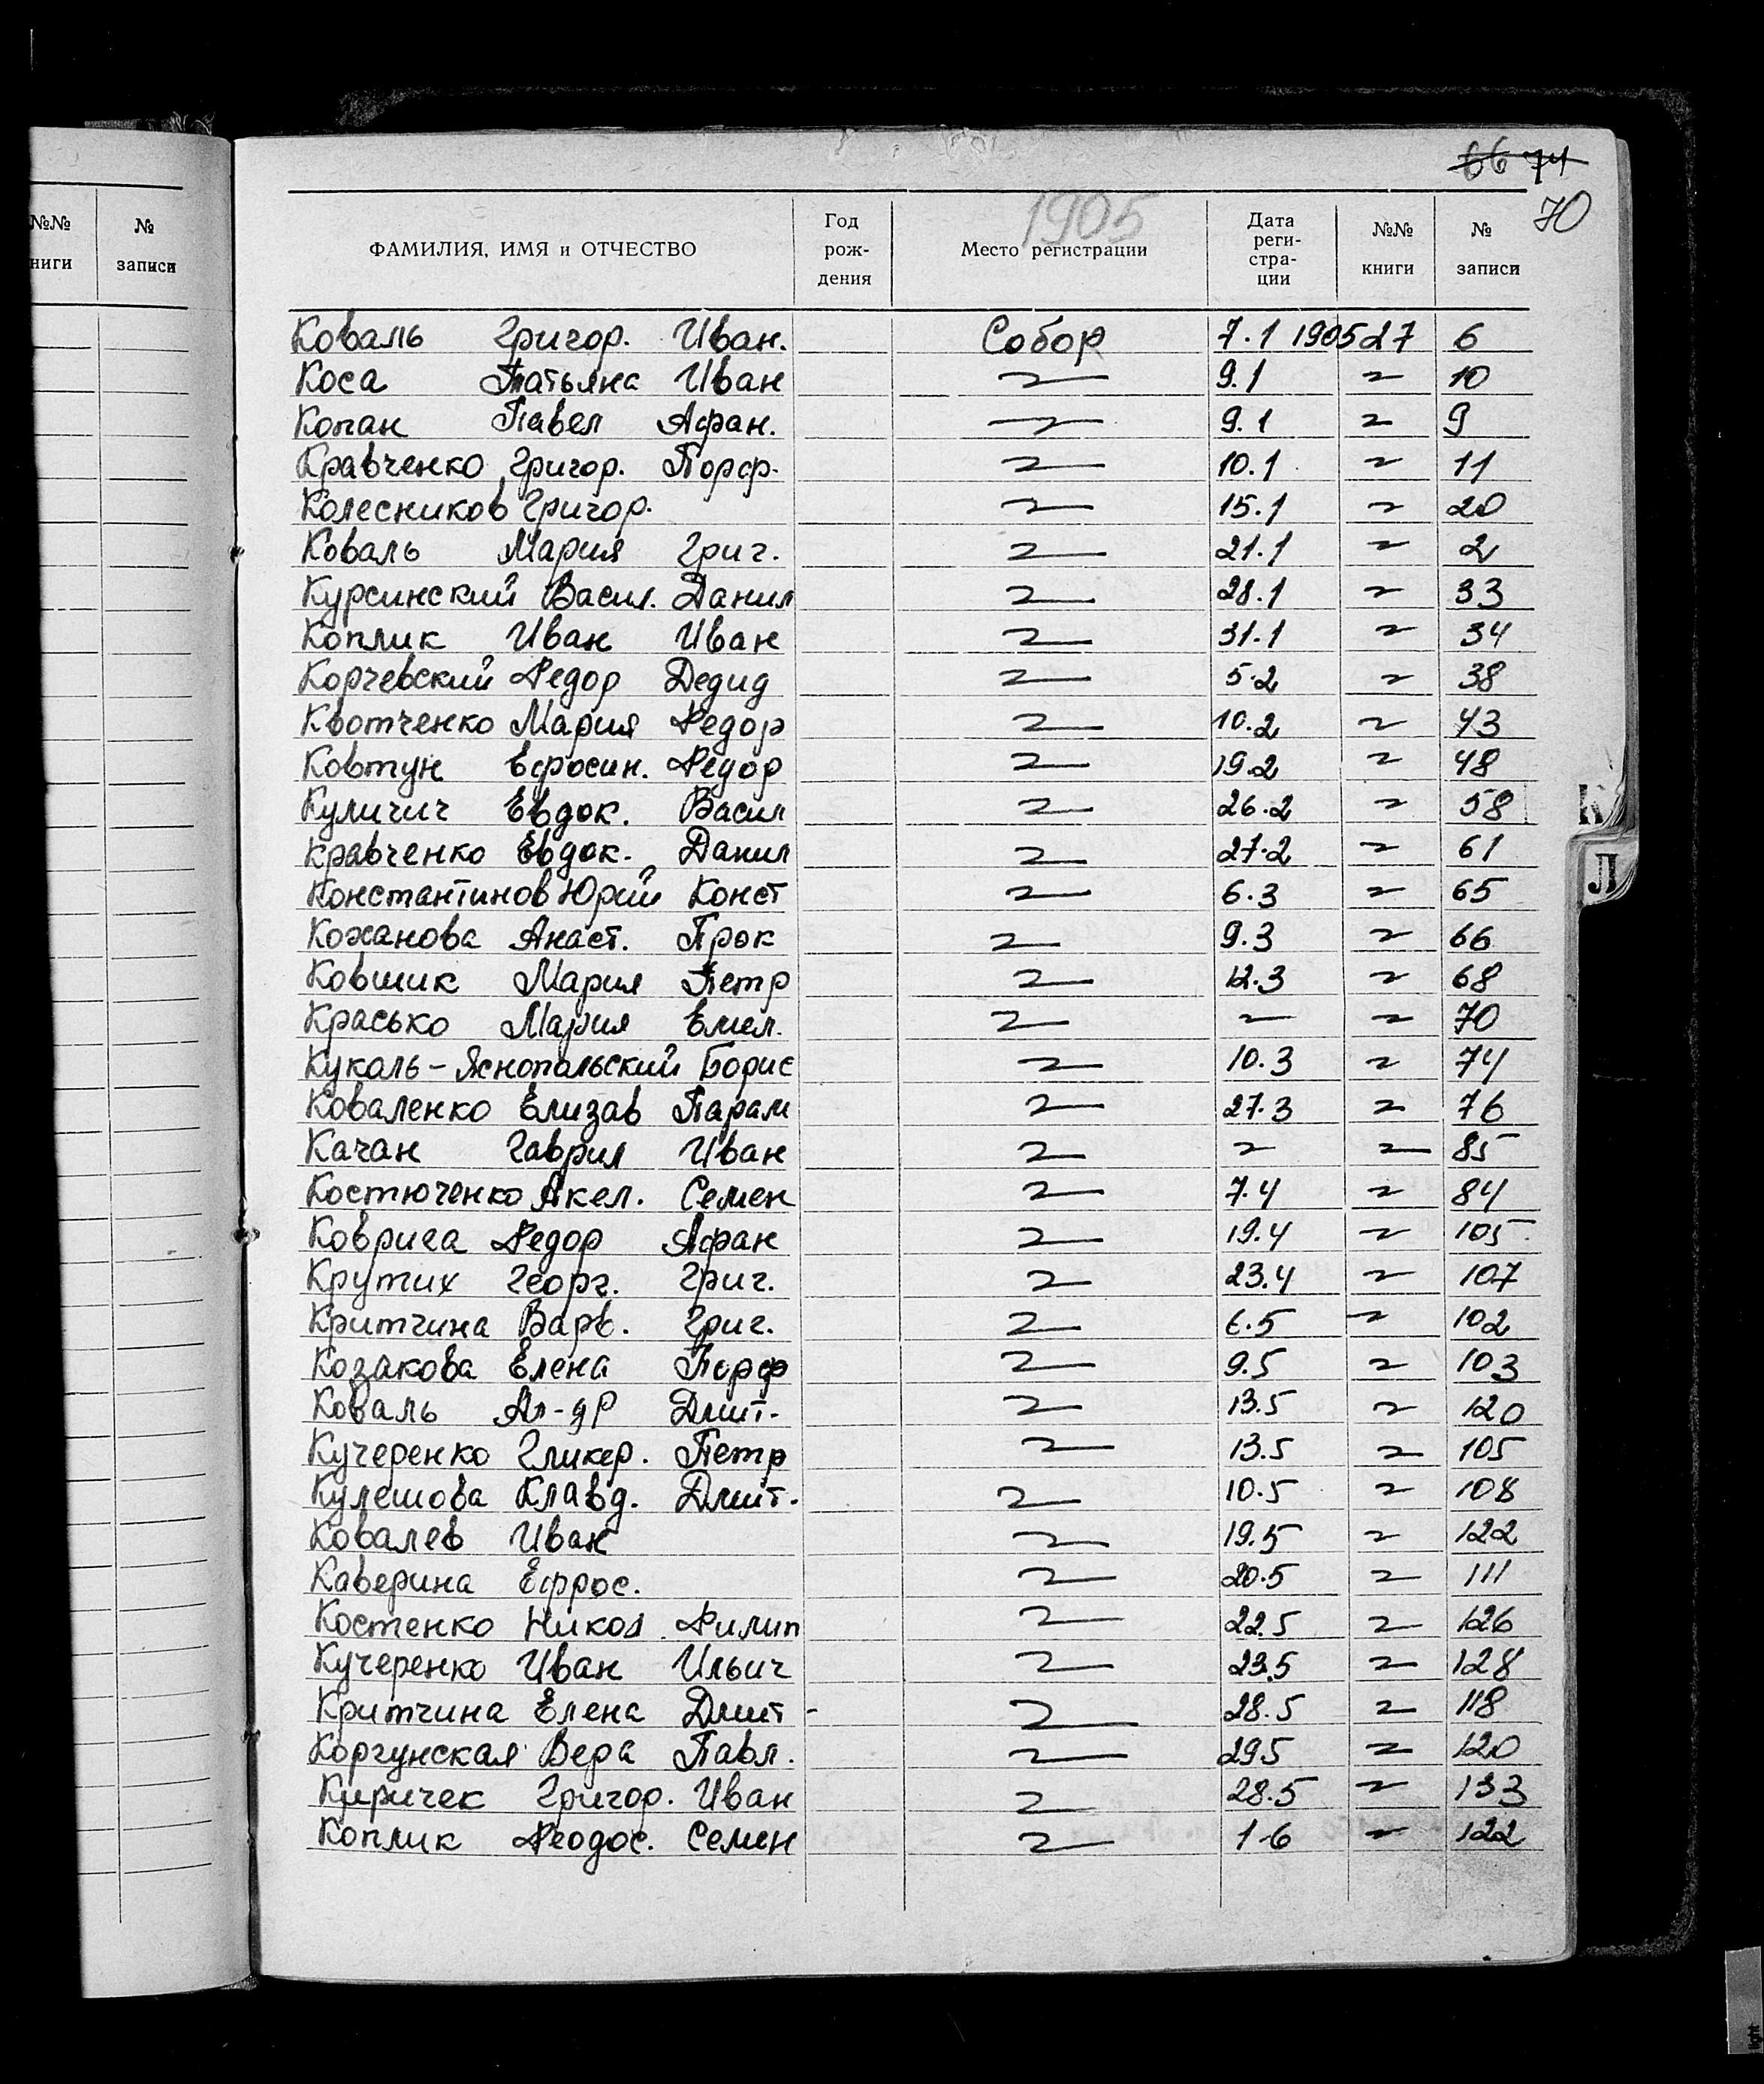 66 74
70
1905
№№ книги
№ записи
ФАМИЛИЯ, ИМЯ и ОТЧЕСТВО
Год рождения
Место регистрации
Дата регистрации
№№ книги
№ записи
Коваль Григор. Иван. Собор 7.1 1905 27 6
Коса Татьяна Иван 〃 9.1 〃 10
Копан Павел Афан. 〃 9.1 〃 9
Кравченко Григор. Порф. 〃 10.1 〃 11
Колесников Григор. 〃 15.1 〃 20
Коваль Мария Григ. 〃 21.1 〃 2
Курсинский Васил. Данил 〃 28.1 〃 33
Коплик Иван Иван 〃 31.1 〃 34
Корчевский Федор Дедид 〃 5.2 〃 38
Квотченко Мария Федор 〃 10.2 〃 43
Ковтун Ефросин. Федор 〃 19.2 〃 48
Куличич Евдок. Васил 〃 26.2 〃 58
Кравченко Евдок. Данил 〃 27.2 〃 61
Константинов Юрий Конст 〃 6.3 〃 65
Кожанова Анаст. Прок 〃 9.3 〃 66
Ковшик Мария Петр 〃 12.3 〃 68
Красько Мария Емел. 〃 〃 〃 70
Кукаль-Яснопольский Борис 〃 10.3 〃 74
Коваленко Елизав Парам 〃 27.3 〃 76
Качан Гаврил Иван 〃 〃 〃 85
Костюченко Акел. Семен 〃 7.4 〃 84
Коврига Федор Афан 〃 19.4 〃 105
Крутих Георг. Григ. 〃 23.4 〃 107
Критчина Варв. Григ. 〃 6.5 〃 102
Козакова Елена Порф 〃 9.5 〃 103
Коваль Ал-др Дмит. 〃 13.5 〃 120
Кучеренко Гликер. Петр 〃 13.5 〃 105
Кулешова Клавд. Дмит. 〃 10.5 〃 108
Ковалев Иван 〃 19.5 〃 122
Каверина Ефрос. 〃 20.5 〃 111
Костенко Никол. Филип 〃 22.5 〃 126
Кучеренко Иван Ильич 〃 23.5 〃 128
Критчина Елена Дмит- 〃 28.5 〃 118
Коргунская Вера Павл. 〃 29.5 〃 120
Киричек Григор. Иван 〃 28.5 〃 133
Коплик Феодос. Семен 〃 1.6 〃 122
К
Л
light